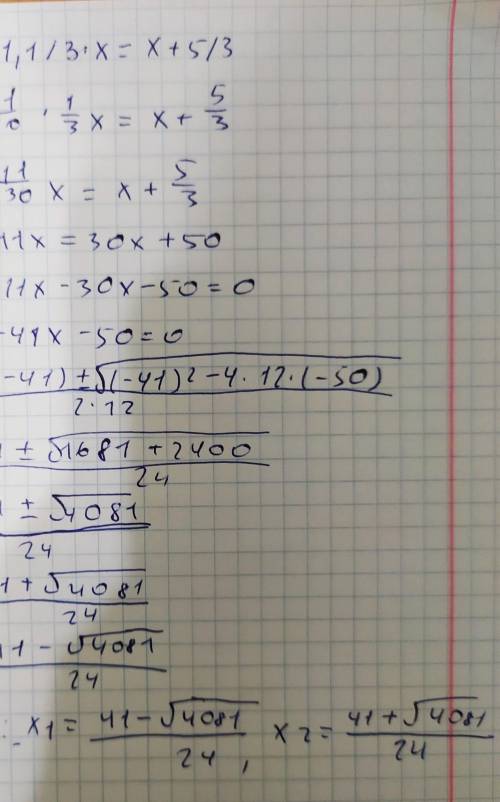 1,1/3·x = x + 5/3
1/0 · 1/3 x = x + 5/3
11/30 x = x + 5/3
11x = 30x + 50
11x - 30x - 50 = 0
-41x - 50 = 0
-41) ± √(-41)² - 4·12·(-50) / 2·12
1 ± √1681 + 2400 / 24
1 ± √4081 / 24
1 + √4081 / 24
41 - √4081 / 24
: x1 = 41 - √4081 / 24, x2 = 41 + √4081 / 24